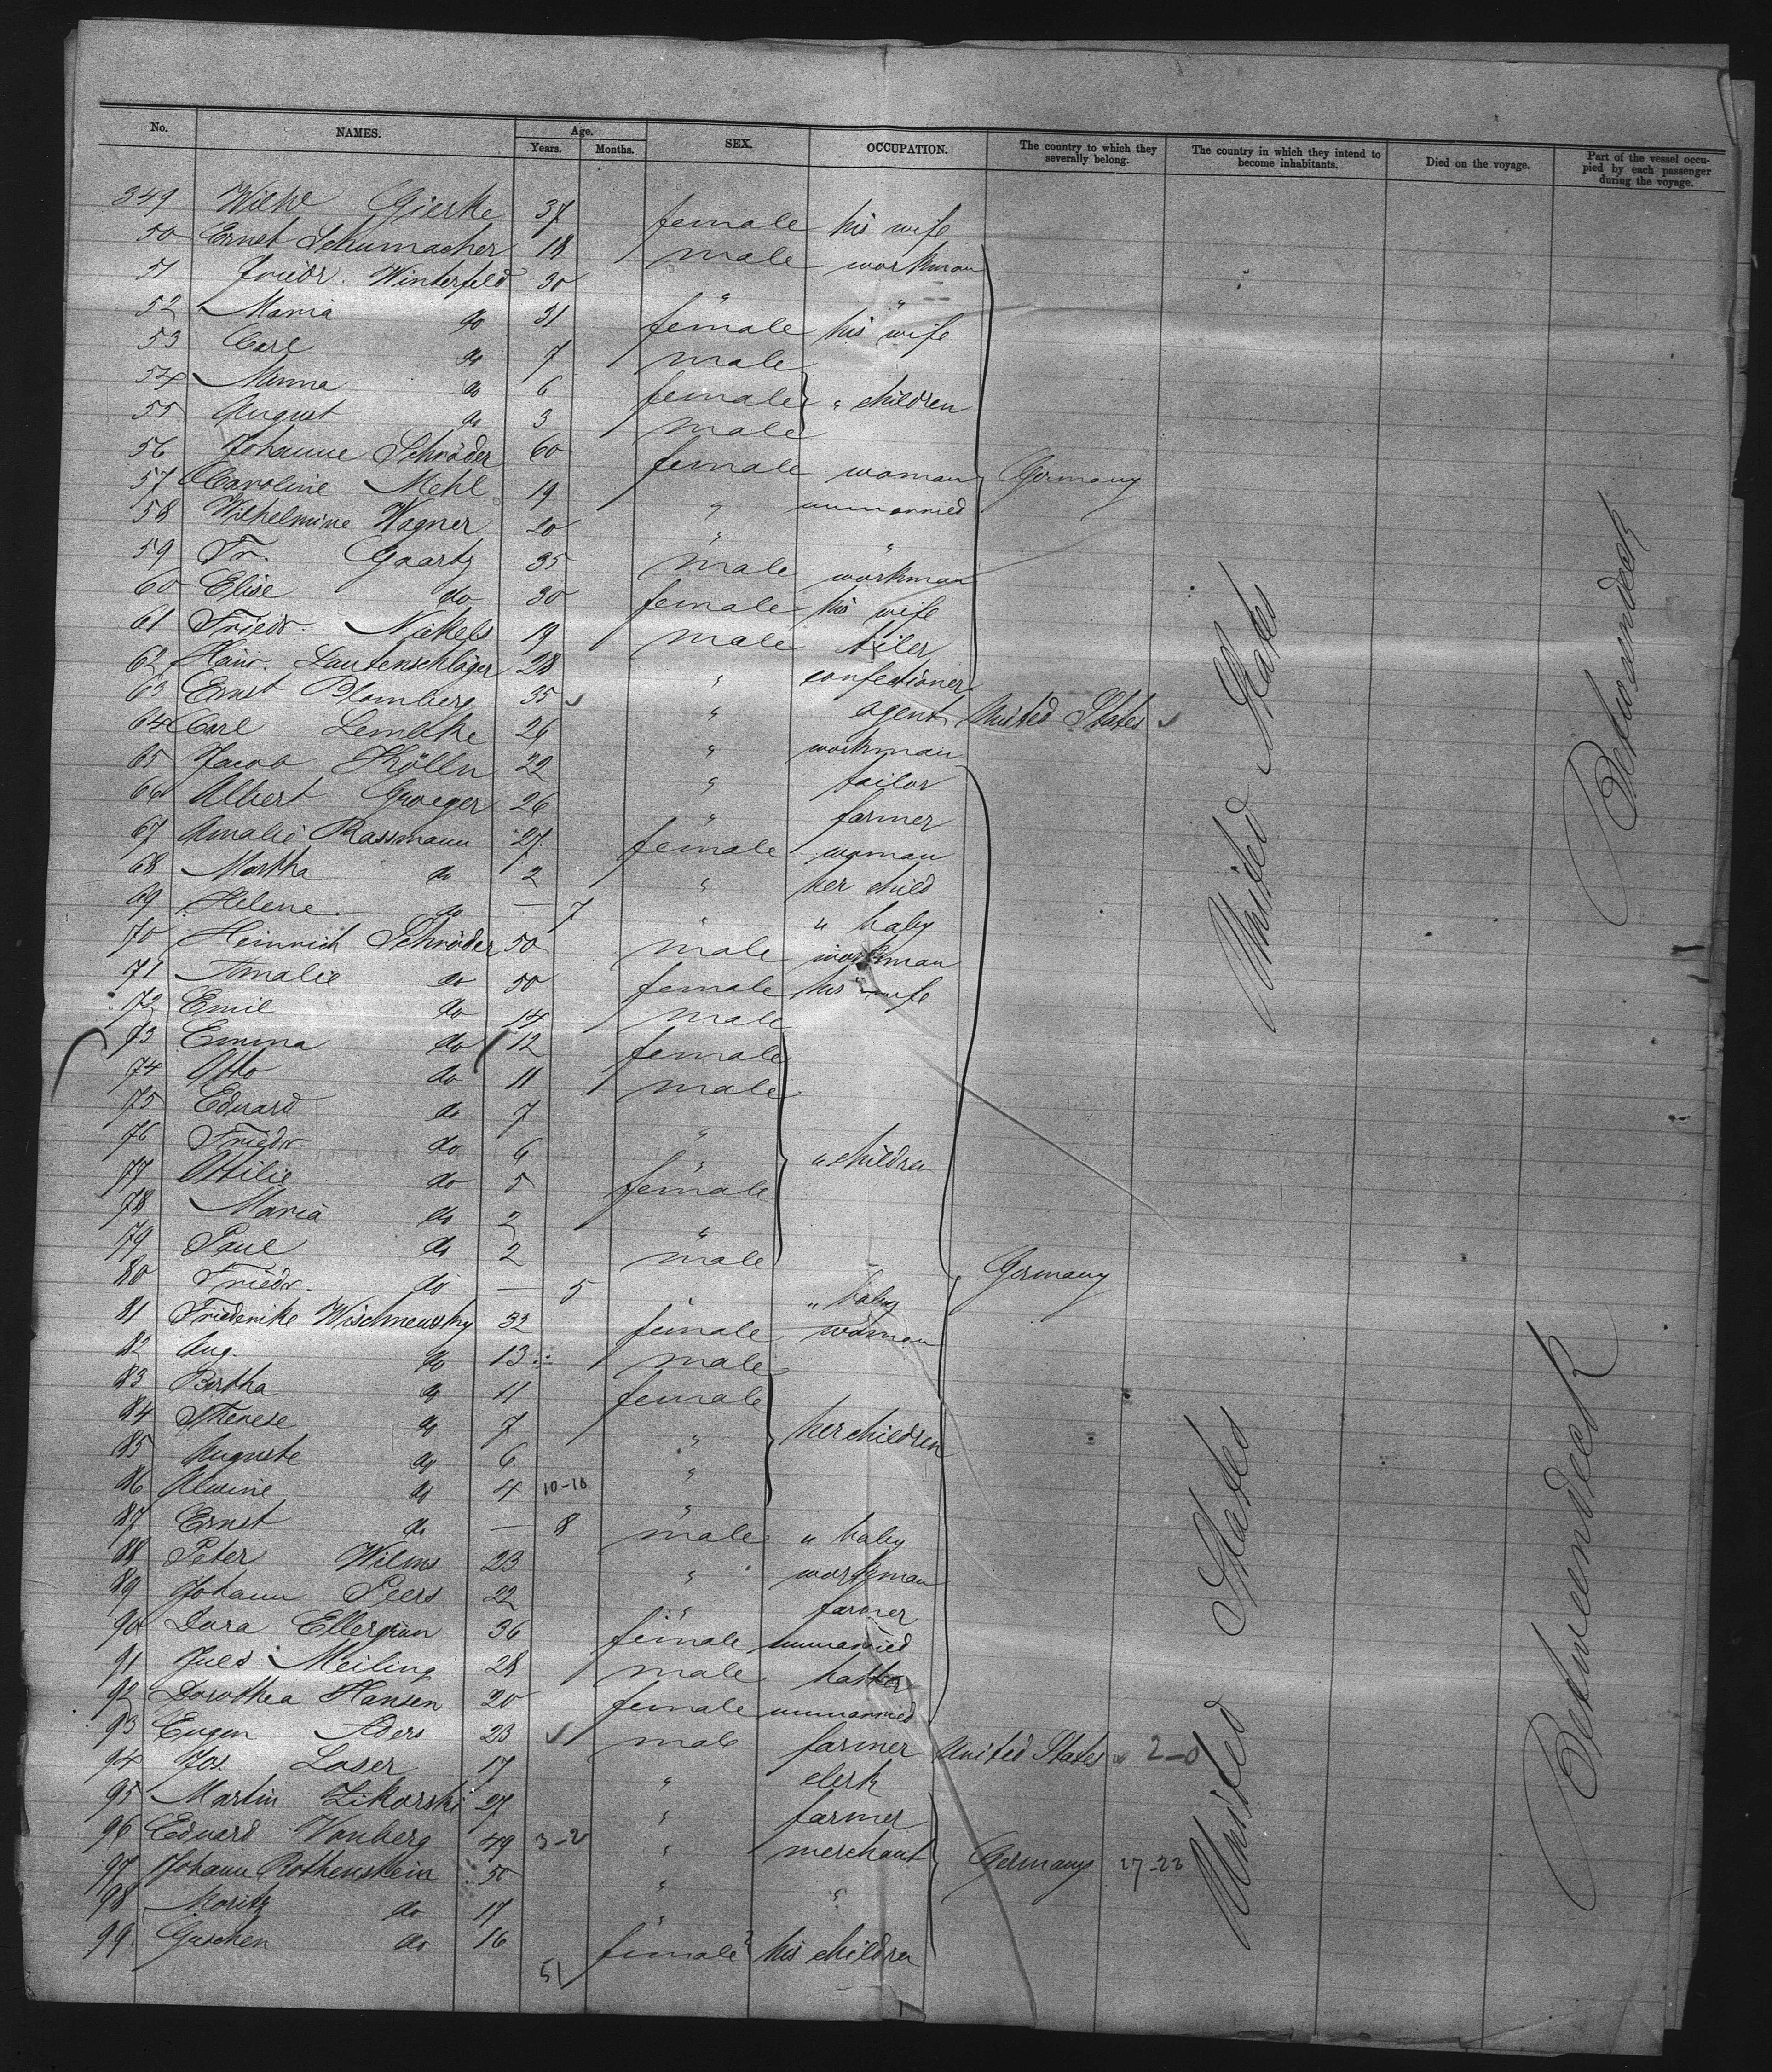 No. NAMES. Age. Years. Months. SEX. OCCUPATION. The country to which they severally belong. The country in which they intend to become inhabitants. Died on the voyage. Part of the vessel occupied by each passenger during the voyage.
349 Wilhe Gierke 37 female his wife
50 Ernst Schumacher 18 male workman
51 Friedr. Winterfeld 30 " "
52 Maria do 31 female his wife
53 Carl do 7 male
54 Minna do 6 female " children
55 August do 3 male
56 Johanne Schröder 60 female woman Germany
57 Caroline Mehl 19 " unmarried
58 Wilhelmine Wagner 20 " "
59 Fr. Gaartz 35 male workman
60 Elise do 30 female his wife
61 Friedr. Nickels 19 male tiler
62 Heinr. Lautenschläger 28 " confectioner
63 Ernst Blomberg 35 " agent United States
64 Carl Lembke 26 " workman
65 Jacob Kölln 22 " tailor
66 Albert Groeger 26 " farmer
67 Amalie Rassmann 27 female woman
68 Martha do 2 " her child
69 Helene do — 7 " " baby
70 Heinrich Schröder 50 male workman
71 Amalie do 50 female his wife
72 Emil do 14 male
73 Emma do 12 female
74 Otto do 11 male
75 Eduard do 7 "
76 Friedr. do 6 " " children
77 Ottilie do 5 female
78 Maria do 2 "
79 Paul do 2 male Germany
80 Friedr. do — 5 " " baby
81 Friederike Wischnewsky 32 female woman
82 Aug. do 13 male
83 Bertha do 11 female
84 Therese do 7 " her children
85 Auguste do 6 "
86 Alwine do 4 10-10 "
87 Ernst do — 8 male " baby
88 Peter Wilms 23 " workman
89 Johann Peers 22 " farmer
90 Dora Ellergrun 36 female unmarried
91 Jules Meiling 28 male hatter
92 Dorothea Hansen 20 female unmarried
93 Eugen Aders 23 male farmer United States 2-0
94 Jos. Laser 17 " clerk
95 Martin Zikorski 27 " farmer
96 Eduard Vonberg 49 3-2 " merchant Germany 27-22
97 Johann Rothenstein 50 " "
98 Moritz do 17 "
99 Guschen do 16 female his children
51
United States
Betweendeck
United States
Betweendeck